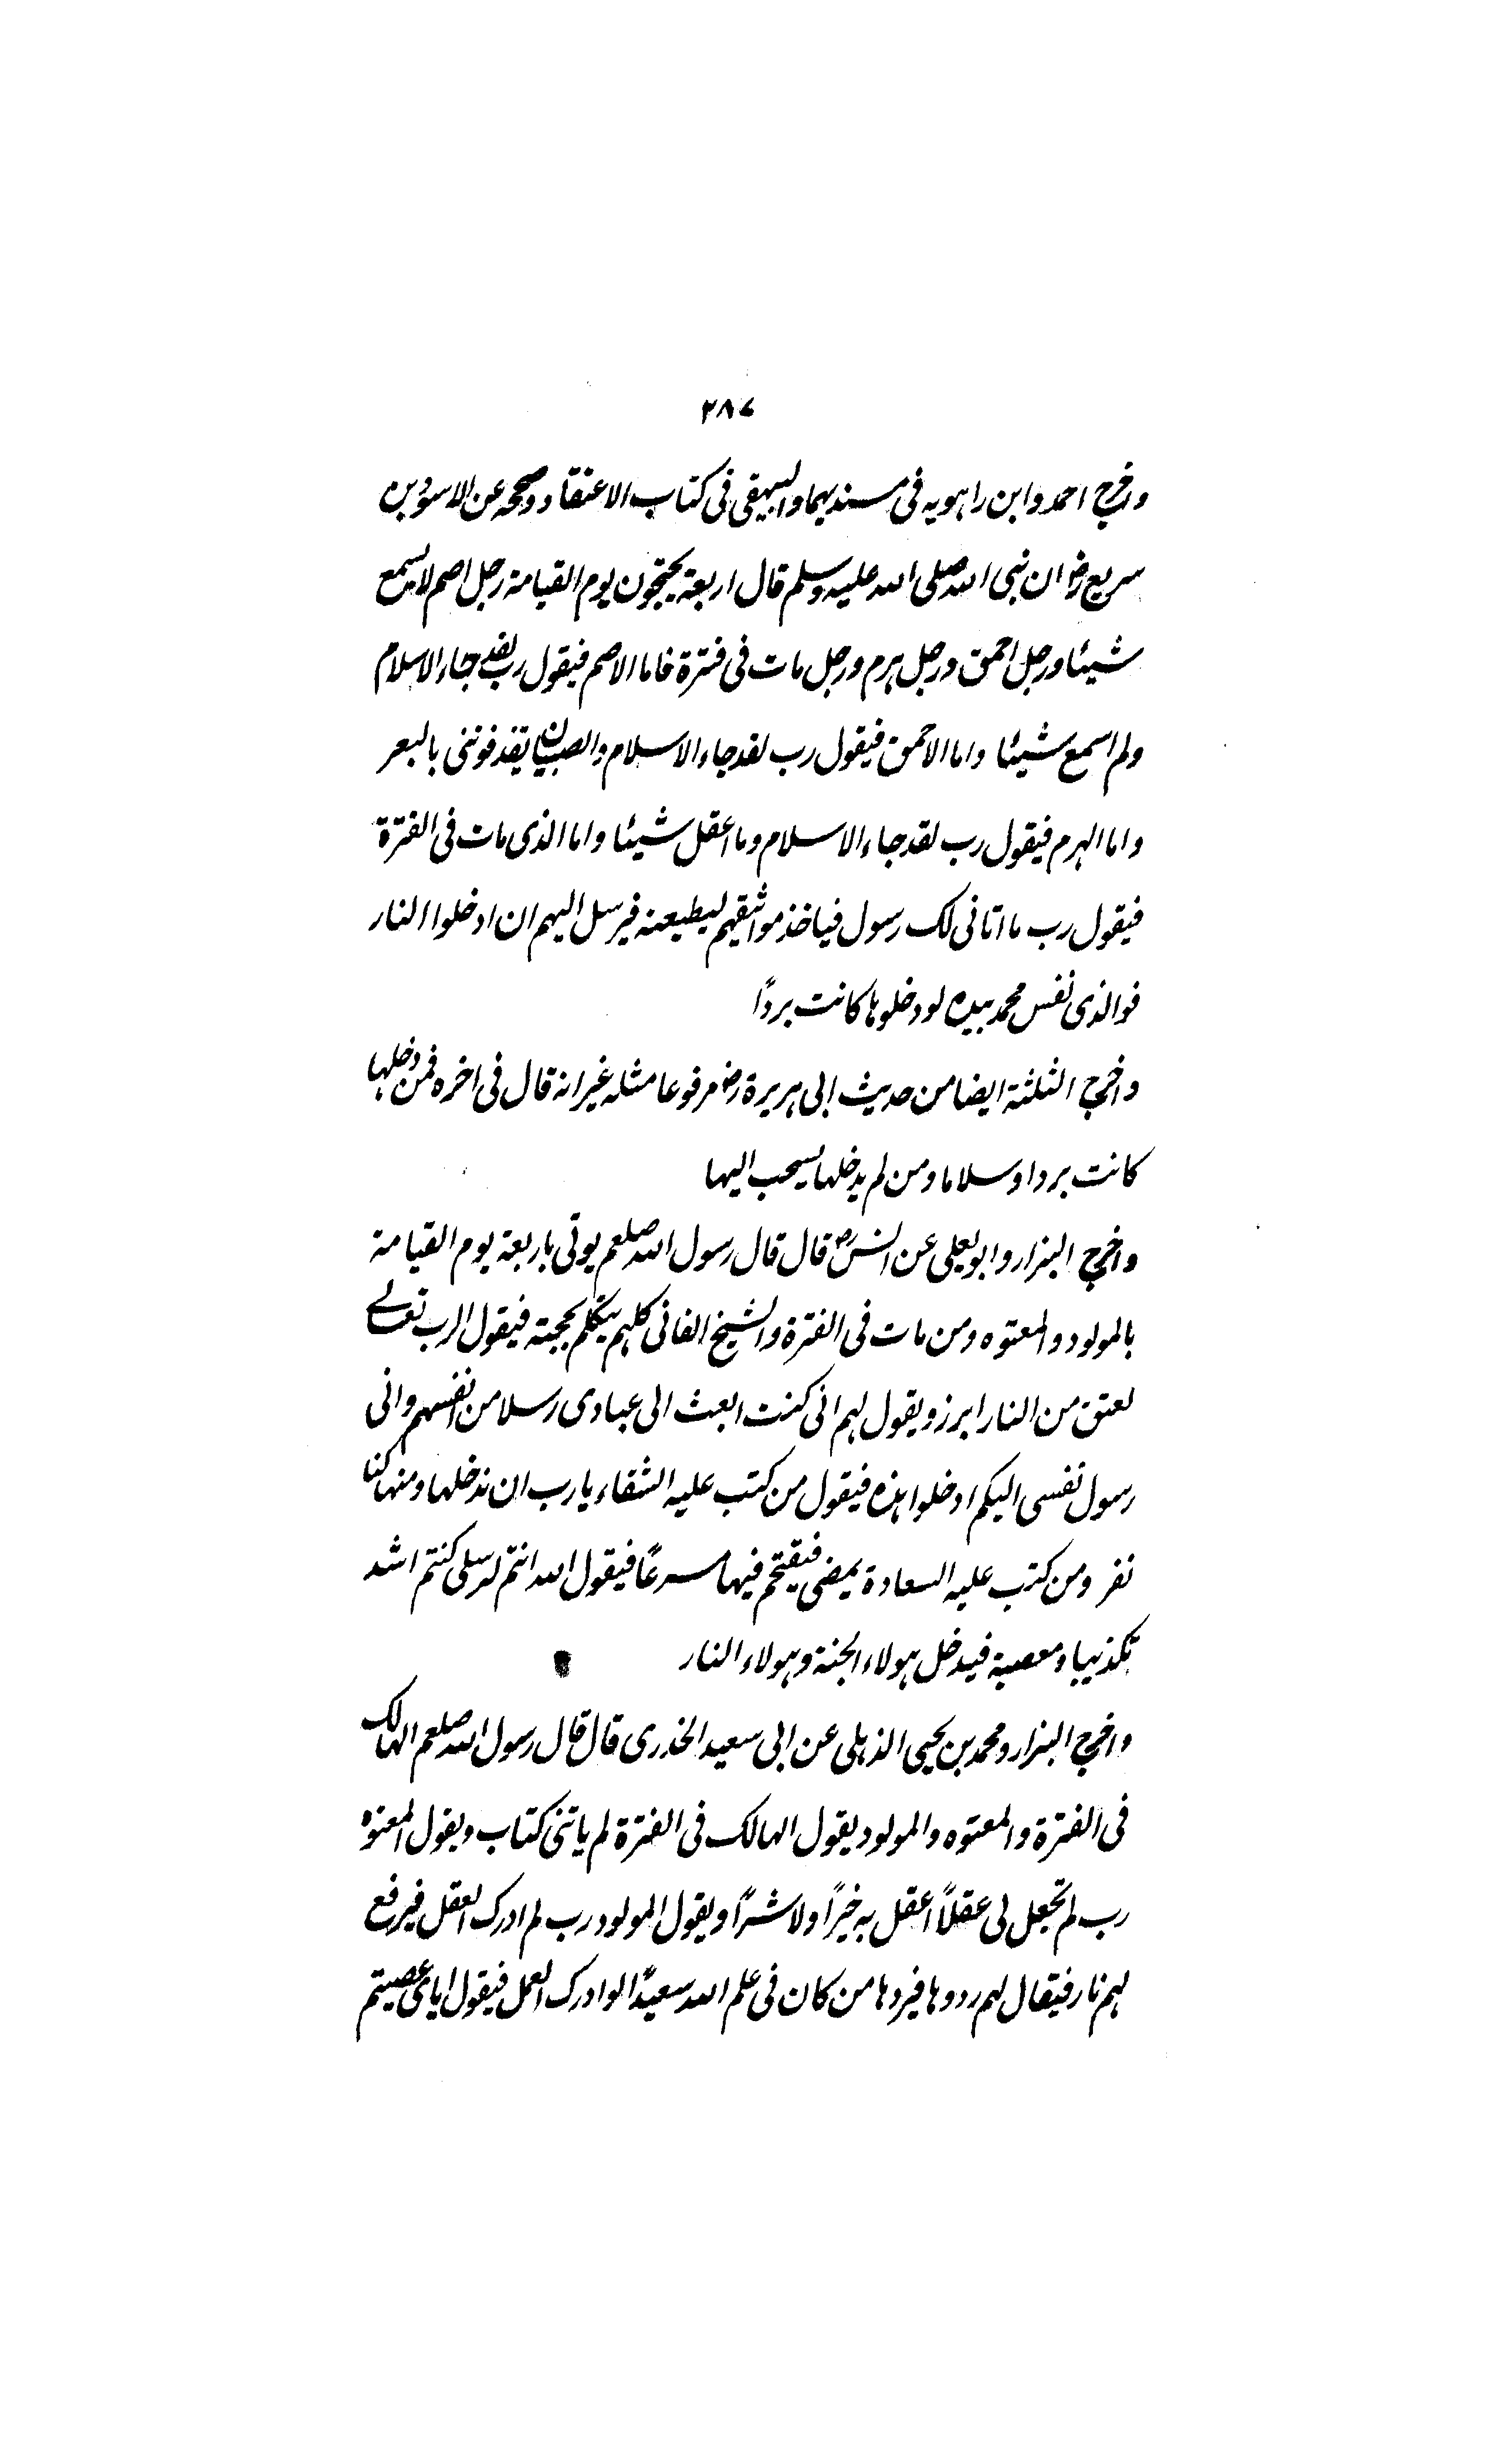 ۲۸۷
واخرج احمد وابن راہویہ فی مسندیہما والبیہقی فی کتاب الاعتقاد وصححہ عن الاسود بن
سریع رض ان نبی اللہ صلی اللہ علیہ وسلم قال اربعۃ یحتجون یوم القیامۃ رجل اصم لا یسمع
شیئا ورجل احمق ورجل ہرم ورجل مات فی فترۃ فاما الاصم فیقول رب لقد جاء الاسلام
ولم اسمع شیئا واما الاحمق فیقول رب لقد جاء الاسلام والصبیان یقذفوننی بالبعر
واما الہرم فیقول رب لقد جاء الاسلام وما اعقل شیئا واما الذی مات فی الفترۃ
فیقول رب ما اتانی لک رسول فیاخذ مواثیقہم لیطیعنہ فیرسل الیہم ان ادخلوا النار
فوالذی نفس محمد بیدہ لو دخلوہا کانت بردًا
واخرج الثلثۃ ایضا من حدیث ابی ہریرۃ رض مرفوعا مثلہ غیر انہ قال فی اخرہ فمن دخلہا
کانت بردا وسلاما ومن لم یدخلہا یسحب الیہا
واخرج البزار وابو یعلی عن انس رض قال قال رسول اللہ صلعم یوتی باربعۃ یوم القیامۃ
بالمولود والمعتوہ ومن مات فی الفترۃ والشیخ الفانی کلہم یتکلم بحجتہ فیقول الرب تعالے
لعنق من النار ابرز ویقول لہم انی کنت ابعث الی عبادی رسلا من انفسہم وانی
رسول نفسی الیکم ادخلوا ہذہ فیقول من کتب علیہ الشقاء یا رب ان ندخلہا ومنہا کنا
نفر ومن کتب علیہ السعادۃ یمضی فیقتحم فیہا مسرعًا فیقول اللہ انتم لرسلی کنتم اشد
تکذیبا ومعصیۃ فیدخل ہولاء الجنۃ وہولاء النار
واخرج البزار ومحمد بن یحیی الذہلی عن ابی سعید الخدری قال قال رسول اللہ صلعم الہالک
فی الفترۃ والمعتوہ والمولود یقول الہالک فی الفترۃ لم یاتنی کتاب ویقول المعتوہ
رب لم تجعل لی عقلاً اعقل بہ خیرًا ولا شرًا ویقول المولود رب لم ادرک العقل فیرفع
لہم نار فیقال لہم ردوہا فیردہا من کان فی علم اللہ سعیدًا لو ادرک العمل فیقول ایای عصیتم